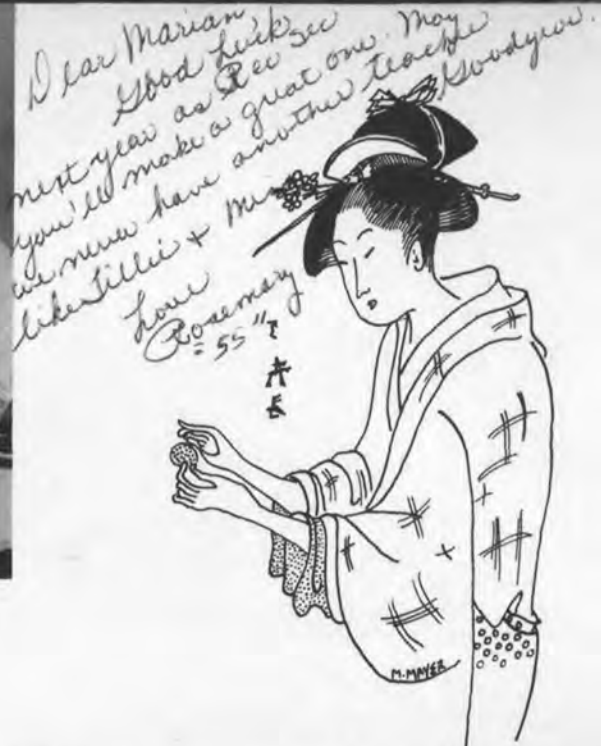 Dear Marian
Good Luck
next year as Rec Sec
you'll make a great one. May
we never have another teacher
like Tillie + Mrs Goodyear.
Love
Rosemary
"55"
M. MAYER